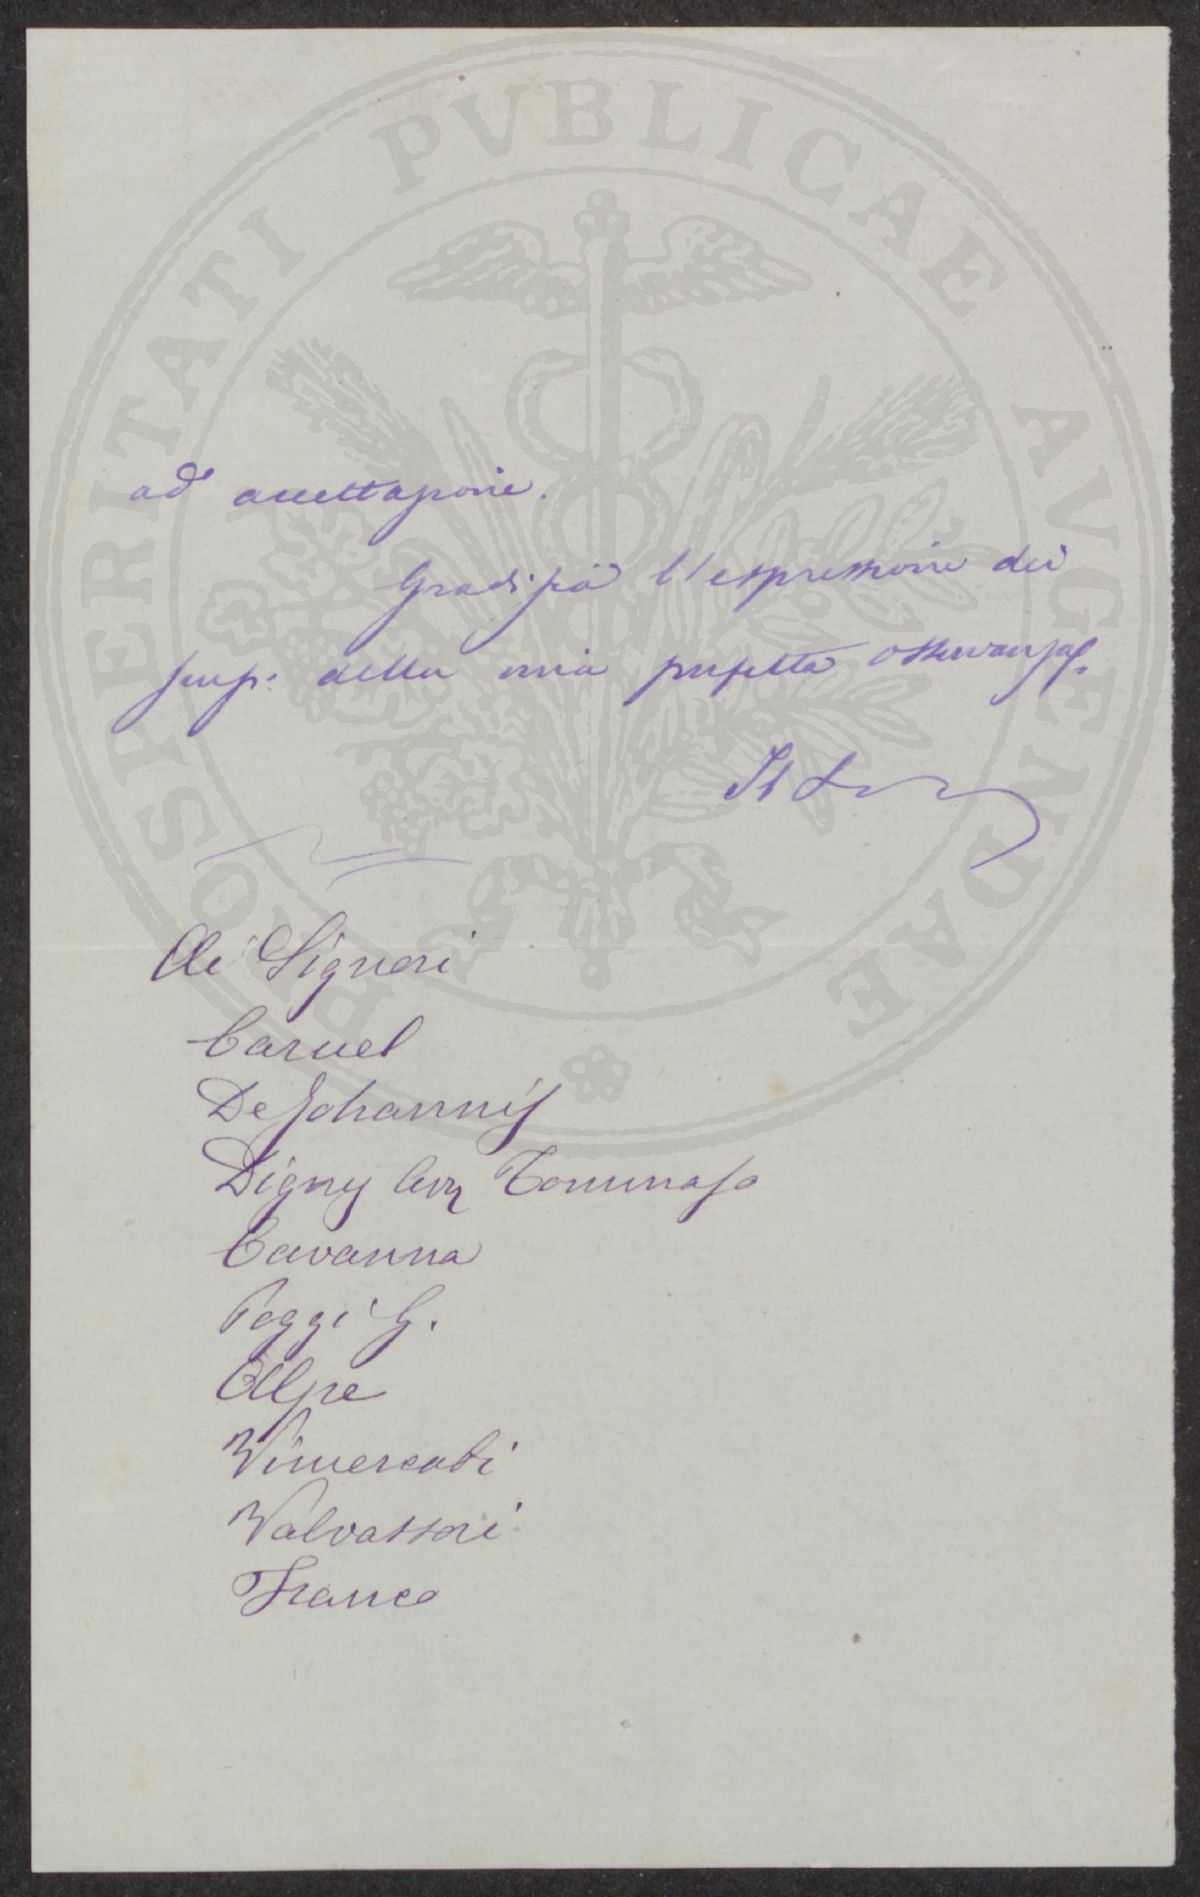 PROSPERITATI PVBLICAE AVGENDAE
ad accettazione.
Gradisca l'espressione dei
della mia perfetta osservanza
Ai Signori
Caruel
De Johannis
Digny Cav Tommaso
Cavanna
Poggi G.
Alpe
Vimercati
Valvassori
Franco